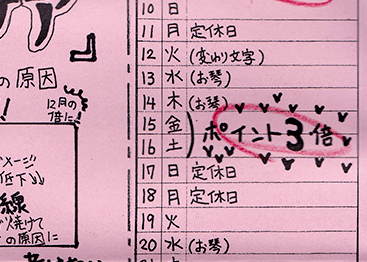 の原因
12月の
倍に!
メージ
低下↓↓
線
で焼けて
の原因に
10 日
11 月 定休日
12 火 (変わり文字)
13 水 (お琴)
14 木 (お琴)
15 金
16 土
ポイント3倍
17 日 定休日
18 月 定休日
19 火
20 水 (お琴)